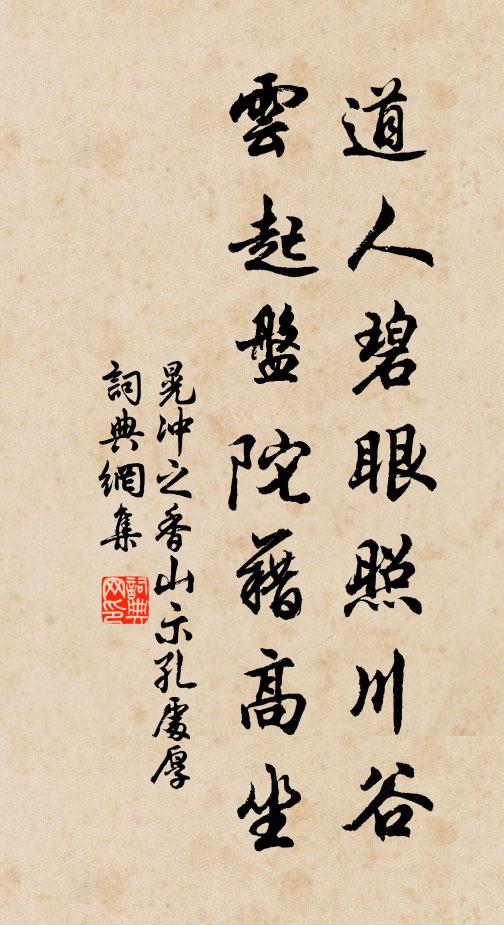 道人碧眼照川谷
雲起盤陀藉高坐
晁沖之香山示孔處厚
詞典網集
詞典網印